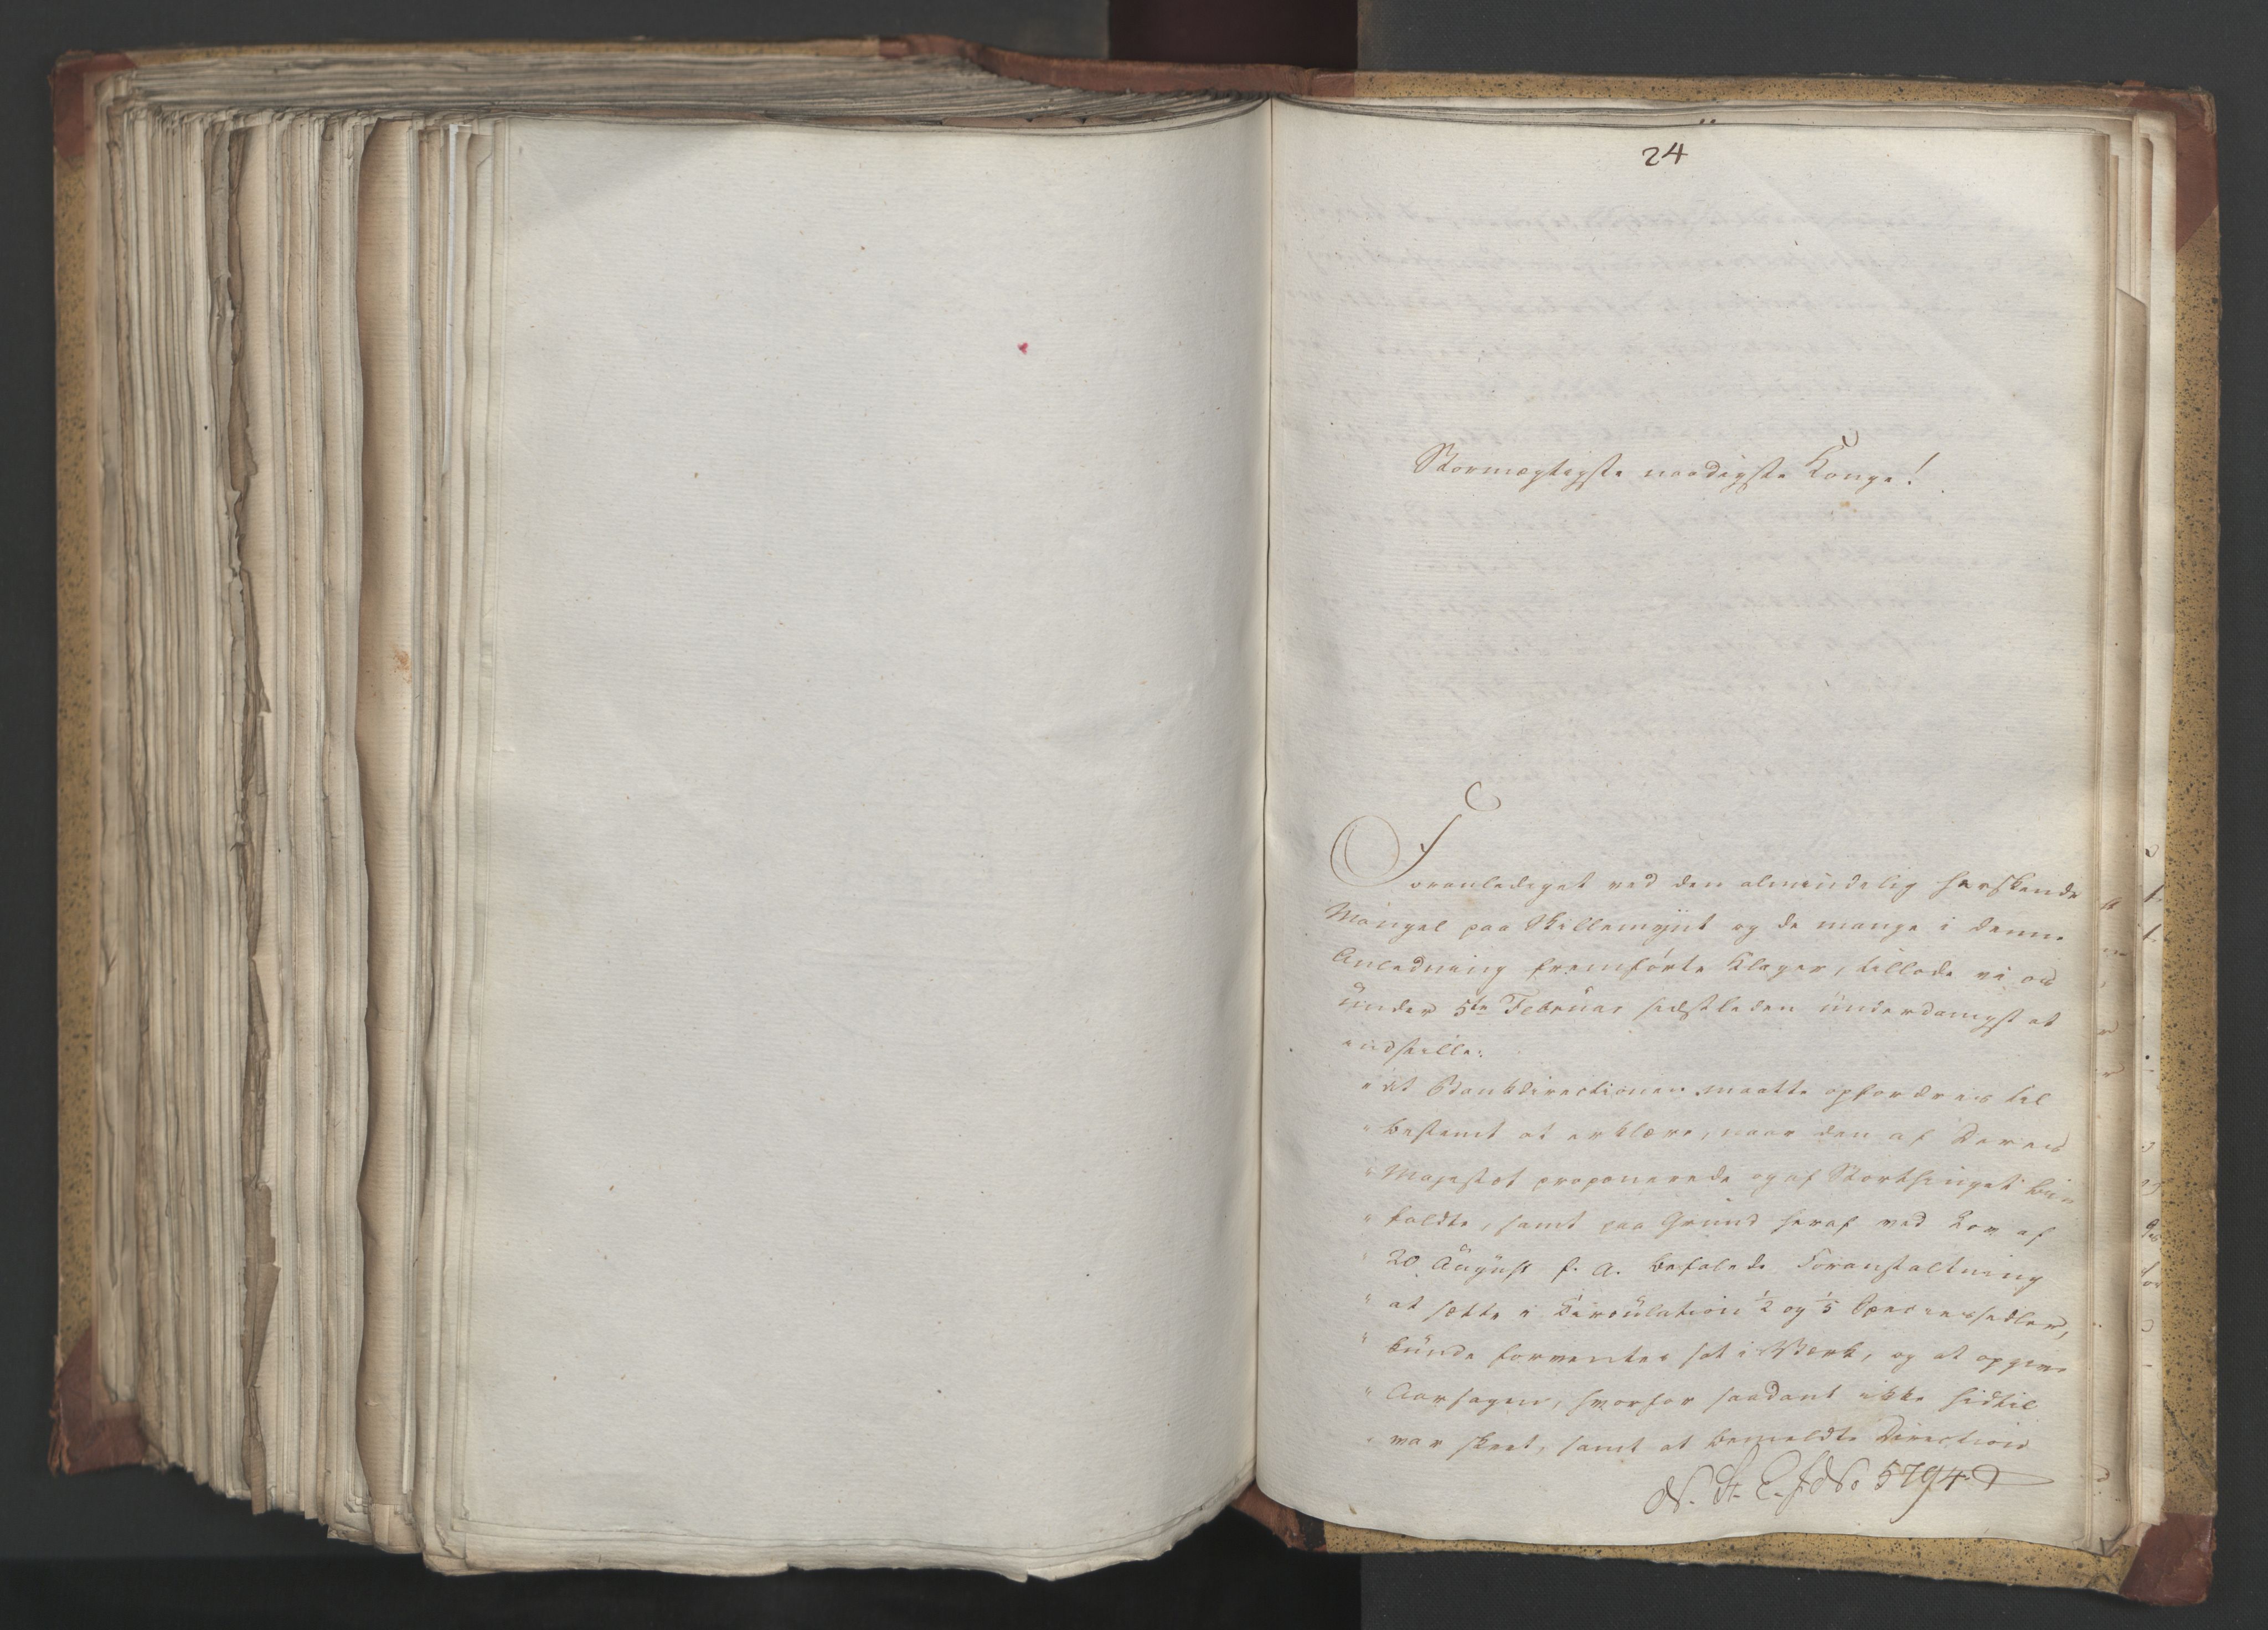 24
Stormægtigste naadigste Konge!
Foranlediget ved den almindelig herskende
Mangel paa Skillemynt og de mange i denne
Anledning fremførte Klager, tillode vi os
under 5te Februar sidstleden underdanigst at
indstille:
"at Bankdirectionen maatte opfordres til
"bestemt at erklære, naar den af Deres
"Majestæt proponerede og af Storthinget bi-
"faldte, samt paa Grund heraf ved Lov af
"20 August f. A. befalede Foranstaltning
"at sætte i Circulation ½ og 1/5 Speciessedler,
"kunde forventes sat i Værk, og at opgive
"Aarsagen, hvorfor saadant ikke hidtil
"var skeet, samt at bemeldte Direction
N. St. E. J. No 5794.